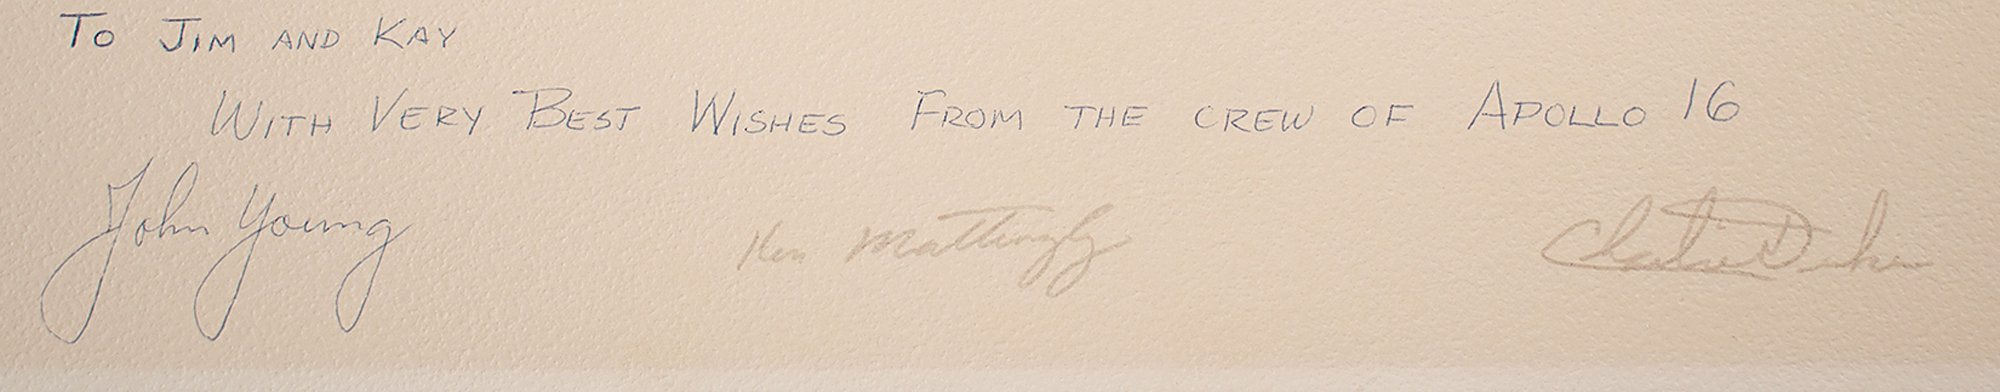 To Jim and Kay
With Very Best Wishes From the crew of Apollo 16
John Young Ken Mattingly Charlie Duke